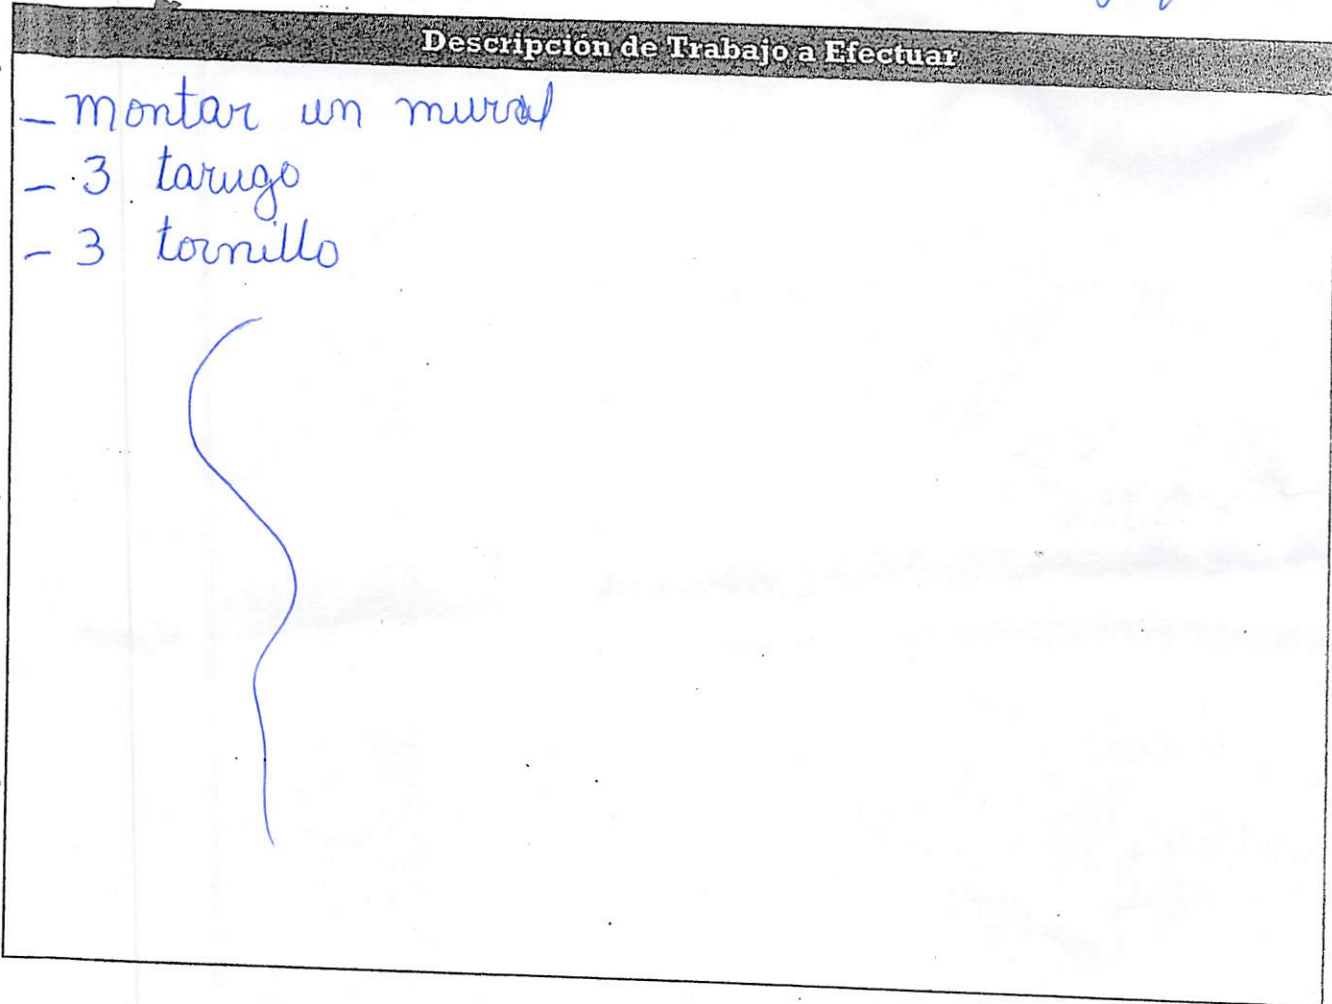 Descripción de Trabajo a Efectuar
- montar un mural
- 3 tarugo
- 3 tornillo